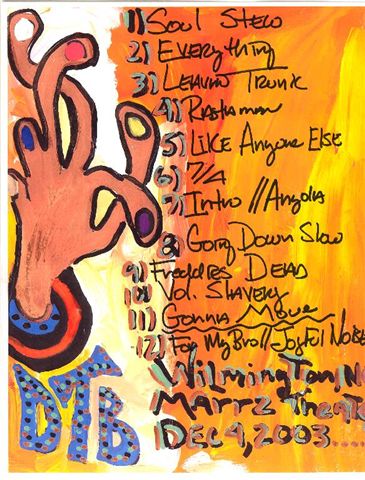 1) Soul Stew
2) Everything
3) Leavin Trunk
4) Rastaman
5) LIKE Anyone ELSE
6) 7/4
7) Intro // Angola
8) Going Down Slow
9) Freddies DEAD
10) Vol. SLAVERY
11) GONNA Move
12) For My Bro// Joyful NOISE
Wilmington, N
MARRZ Theate
DEC 4, 2003....
DTB